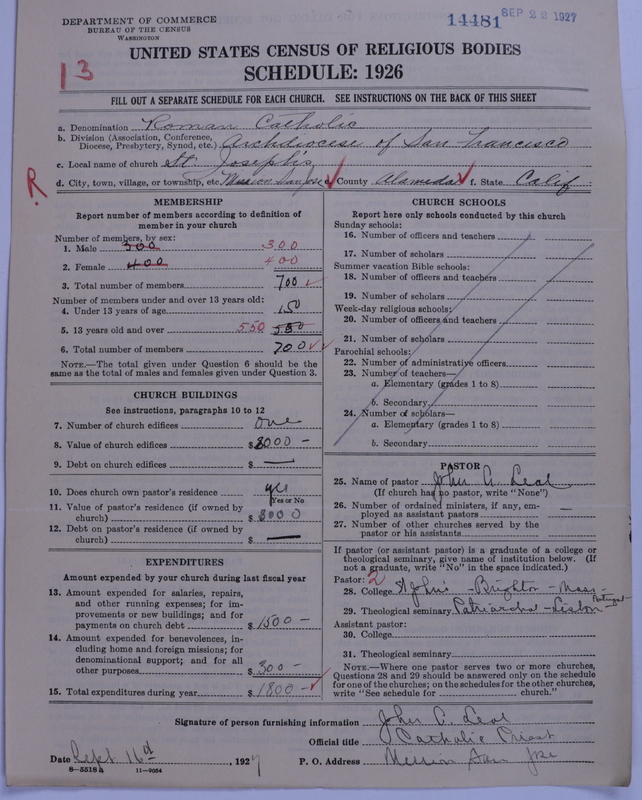 DEPARTMENT OF COMMERCE
BUREAU OF THE CENSUS
WASHINGTON
14481 SEP 22 1927
13
UNITED STATES CENSUS OF RELIGIOUS BODIES
SCHEDULE: 1926
FILL OUT A SEPARATE SCHEDULE FOR EACH CHURCH. SEE INSTRUCTIONS ON THE BACK OF THIS SHEET
a. Denomination Roman Catholic
b. Division (Association, Conference, Diocese, Presbytery, Synod, etc.) Archdiocese of San Francisco
c. Local name of church St Joseph's
R
d. City, town, village, or township, etc. Mission San Jose County Alameda f. State Calif
MEMBERSHIP
Report number of members according to definition of
member in your church
Number of members, by sex:
1. Male 300 300
2. Female 400 400
3. Total number of members 700
Number of members under and over 13 years old:
4. Under 13 years of age 150
5. 13 years old and over 550 550
6. Total number of members 700
NOTE.—The total given under Question 6 should be
same as the total of males and females given under Question 3.
CHURCH BUILDINGS
See instructions, paragraphs 10 to 12
7. Number of church edifices one
8. Value of church edifices $8000 —
9. Debt on church edifices $ —
10. Does church own pastor's residence yes
Yes or No
11. Value of pastor's residence (if owned by
church) $ 3000
12. Debt on pastor's residence (if owned by
church) $ —
EXPENDITURES
Amount expended by your church during last fiscal year
13. Amount expended for salaries, repairs,
and other running expenses; for im-
provements or new buildings; and for
payments on church debt $1500 —
14. Amount expended for benevolences, in-
cluding home and foreign missions; for
denominational support; and for all
other purposes $300 —
15. Total expenditures during year $1800 —
CHURCH SCHOOLS
Report here only schools conducted by this church
Sunday schools:
16. Number of officers and teachers
17. Number of scholars
Summer vacation Bible schools:
18. Number of officers and teachers
19. Number of scholars
Week-day religious schools:
20. Number of officers and teachers
21. Number of scholars
Parochial schools:
22. Number of administrative officers
23. Number of teachers—
a. Elementary (grades 1 to 8)
b. Secondary
24. Number of scholars—
a. Elementary (grades 1 to 8)
b. Secondary
PASTOR
25. Name of pastor John A. Leal
(If church has no pastor, write "None")
26. Number of ordained ministers, if any, em-
ployed as assistant pastors —
27. Number of other churches served by the
pastor or his assistants
If pastor (or assistant pastor) is a graduate of a college or
theological seminary, give name of institution below. (If
not a graduate, write "No" in the space indicated.)
Pastor: 2
28. College St John's - Brighton - Mass -
29. Theological seminary Patriarchal - Lisbon - Portugal
Assistant pastor:
30. College
31. Theological seminary
NOTE.—Where one pastor serves two or more churches,
Questions 28 and 29 should be answered only on the schedule
for one of the churches; on the schedules for the other churches,
write "See schedule for church."
Signature of person furnishing information John A. Leal
Official title Catholic Priest
Date Sept 16th, 1927 P. O. Address Mission San Jose
8—5518a 11—9054